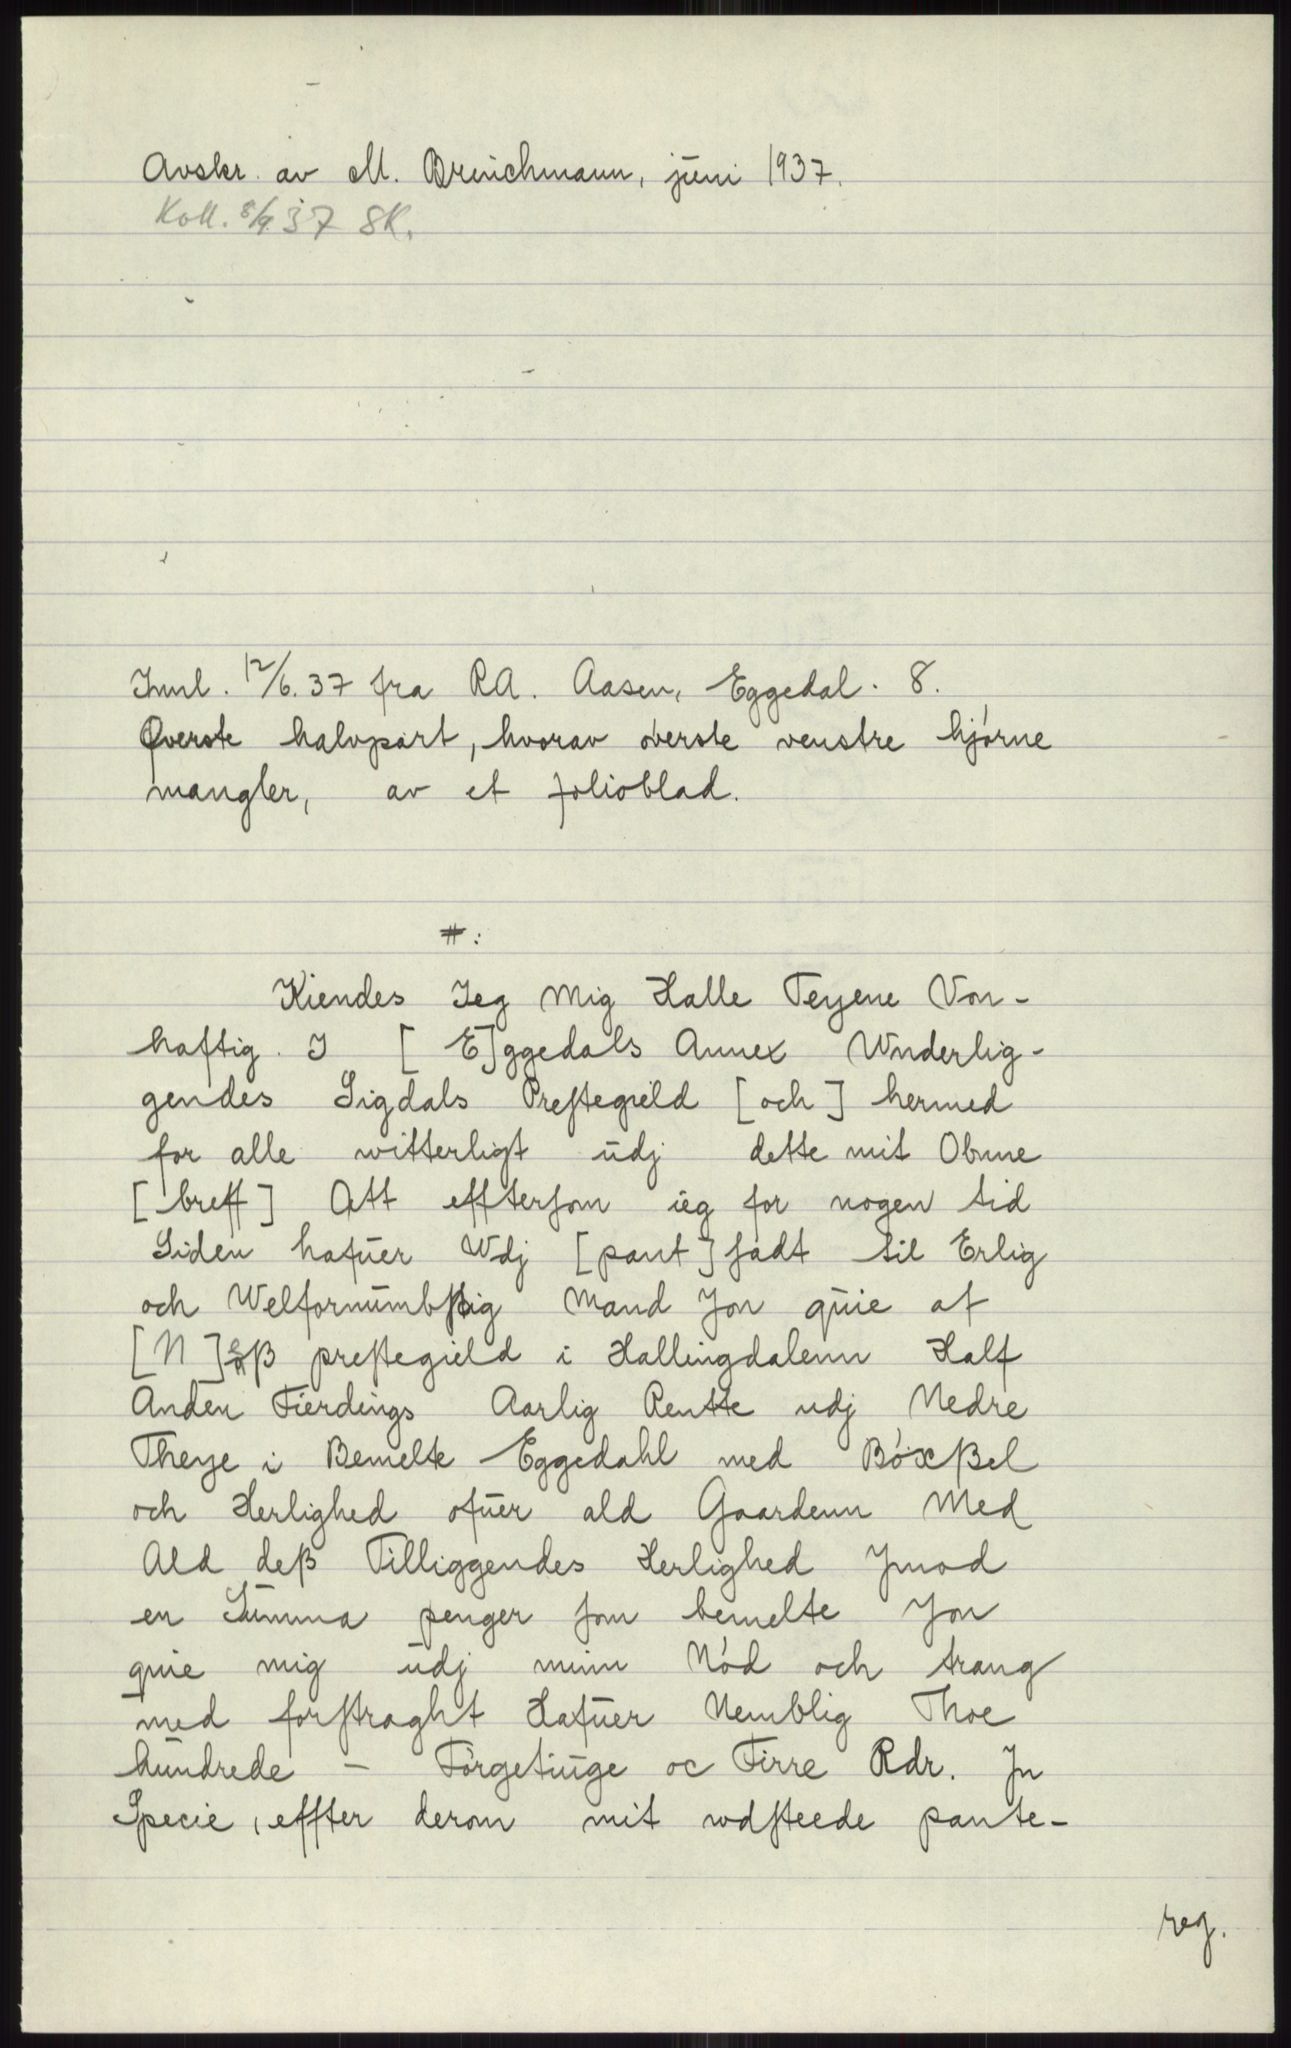 Avskr. av M. Brinchmann, juni 1937.
Koll. 8/9.37 SK.
Innl. 12/6.37 fra R.A. Aasen, Eggedal. 8.
Øverste halvpart, hvorav øverste venstre hjørne
mangler, av et folioblad.
#:
Kiendes Jeg Mig Halle Teyene Von-
haftig I [E]ggedals Annex Wnderlig-
gendes Sigdals Prestegield [och] hermed
for alle witterligt udj dette mit Obnne
[breff] Att efftersom ieg for nogen tid
Siden hafuer Wdj [pant]sadt til Erlig
och Welfornumbstig Mand Jon quie af
[N]eß prestegield i Hallingdalenn Half
Anden Fierdings Aarlig Rentte udj Nedre
Theye i Bemelte Eggedahl med Bóxßel
och Herlighed ofuer ald Gaardenn Med
Ald deß Tilliggendes Herlighed Jmod
en Summa penger som bemelte Jon
quie mig udj minn Nód och trang
med forstraght Hafuer Nemblig Thoe
hundrede – Förgetiuge oc Firre Rdr. Jn
Specie, effter derom mit wdsteede pante-
reg.